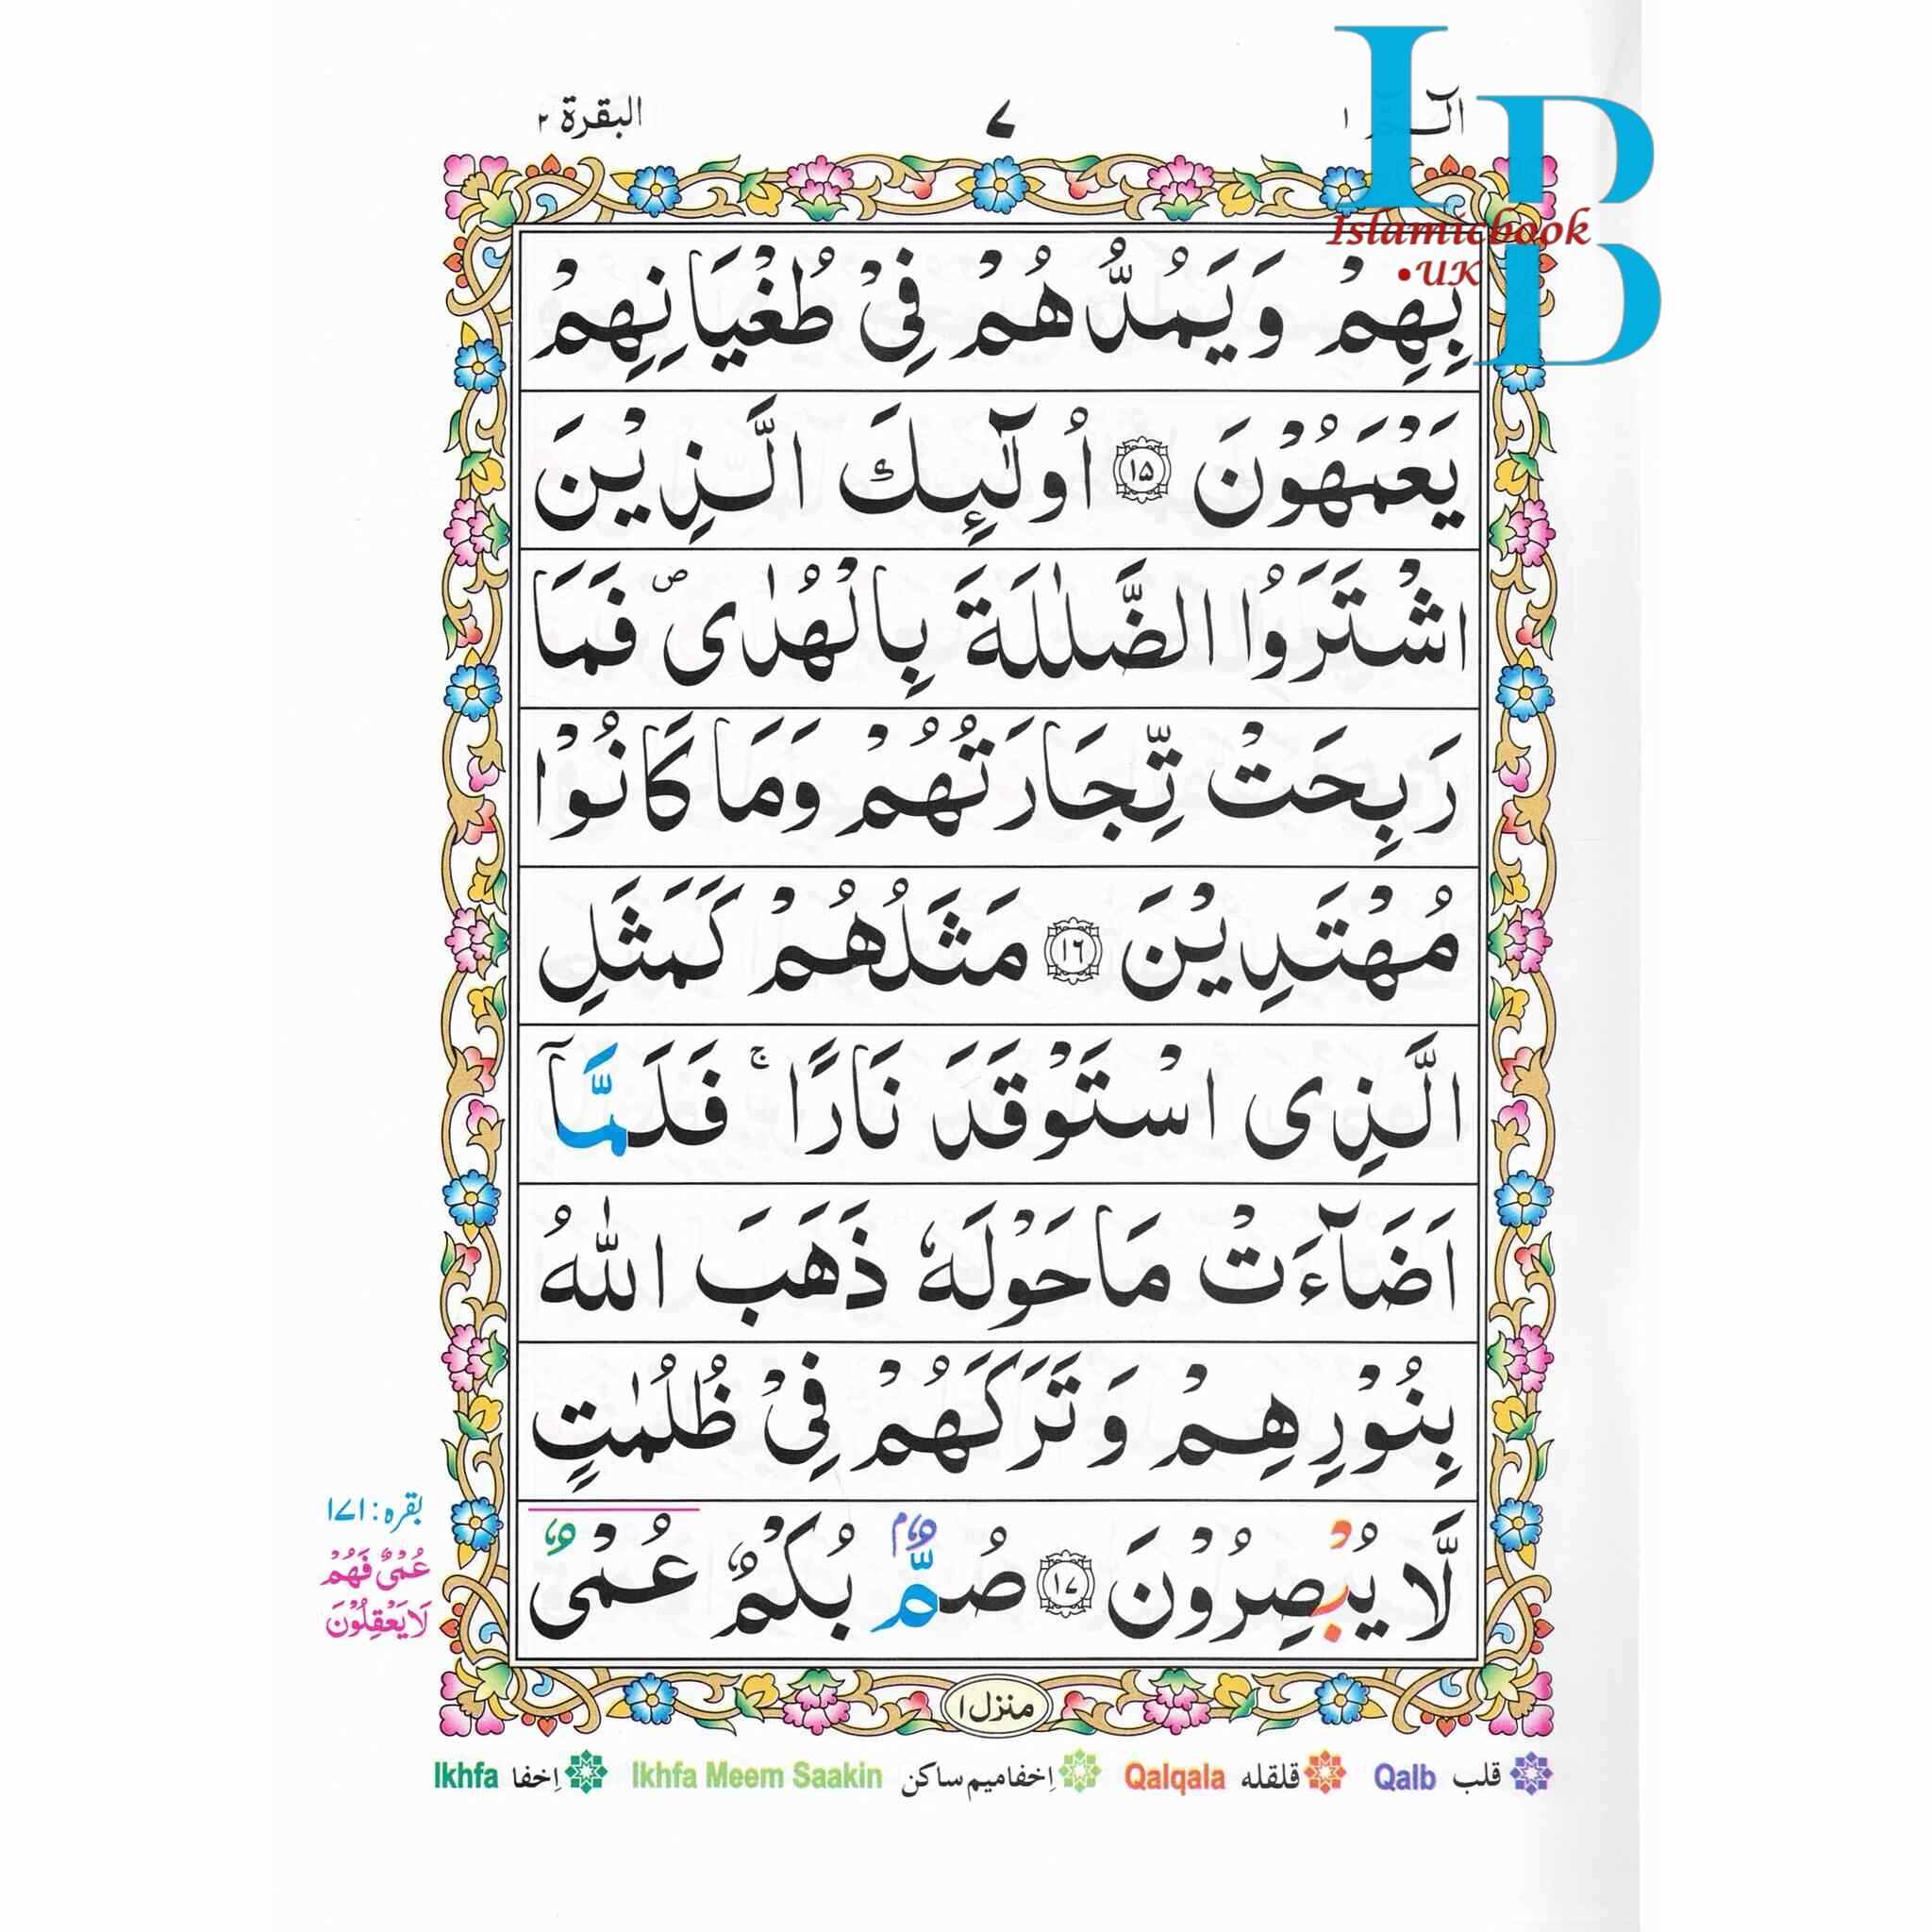 البقرة ٢
٧
الٓمّٓ ١
IB
D
Islamicbook
.UK
بِهِمْ وَيَمُدُّهُمْ فِيْ طُغْيَانِهِمْ
يَعْمَهُوْنَ ١٥ اُولٰٓئِكَ الَّذِيْنَ
اشْتَرَوُا الضَّلٰلَةَ بِالْهُدٰى ۪ فَمَا
رَبِحَتْ تِّجَارَتُهُمْ وَمَا كَانُوْا
مُهْتَدِيْنَ ١٦ مَثَلُهُمْ كَمَثَلِ
الَّذِى اسْتَوْقَدَ نَارًا ۚ فَلَمَّآ
اَضَآءَتْ مَاحَوْلَهٗ ذَهَبَ اللّٰهُ
بِنُوْرِهِمْ وَتَرَكَهُمْ فِيْ ظُلُمٰتٍ
لَّا يُبْصِرُوْنَ ١٧ صُمٌّۢ بُكْمٌ عُمْىٌ
بقره: ١٧١
عُمْىٌ فَهُمْ
لَا يَعْقِلُوْنَ
منزل ١
قلب Qalb قلقله Qalqala اِخفا میم ساکن Ikhfa Meem Saakin اِخفا Ikhfa